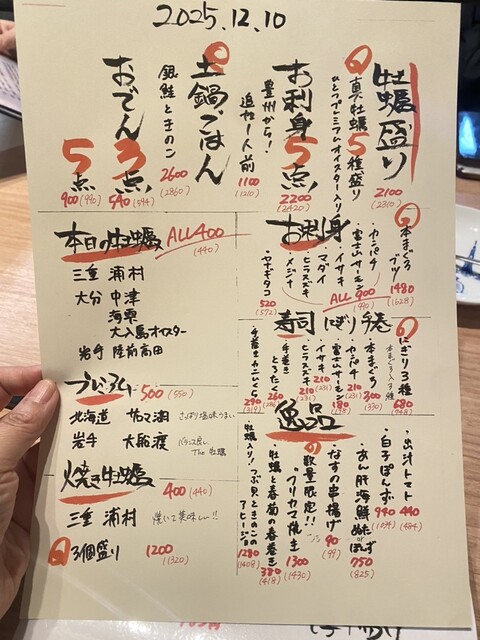 2025.12.10
牡蠣盛り
真牡蠣5種盛り
ひとつプレミアムオイスター入り
2100
(2310)
お刺身5点
豊州から!
2200
(2420)
追加一人前
1100
(1210)
土鍋ごはん
銀鮭ときのこ
2600
(2860)
おでん
3点
540(594)
5点
900(990)
本日の生牡蠣
ALL400
(440)
三重 浦村
大分 中津
海栗
大入島オイスター
岩手 陸前高田
プレミアム
500(550)
北海道 サロマ湖
さっぱり塩味うまい
岩手 大船渡
バランス良し
The 牡蠣
焼き牡蠣
400(440)
三重 浦村
焼いて美味しい!!
3個盛り
1200
(1320)
お刺身
本まぐろ
ブツ
1480
(1628)
・カンパチ
・富士山サーモン
・イサキ
・マダイ
・ヒラスズキ
・メジナ
ALL 900
(990)
・ヤナギダコ
520
(572)
寿司 にぎり 手巻
にぎり3種
本まぐろ入り3種
680
(748)
・本まぐろ
300
(330)
・カンパチ
210
(231)
・富士山サーモン
180
(198)
・イサキ
210
(231)
・ヒラスズキ
210
(231)
・手巻き
とろたく
260
(286)
・手巻き
290
(319)
逸品
・出汁トマト
440
(484)
・白子ぽんず
940
(1034)
・あん肝海鮮ぬたぽんず
750
(825)
・なすの串揚げ
90
(99)
数量限定!!
ブリカマ焼き
1300
(1430)
・牡蠣と春菊の春巻き
380
(418)
・牡蠣入り!つぶ貝ときのこの
アヒージョ
1280
(1408)